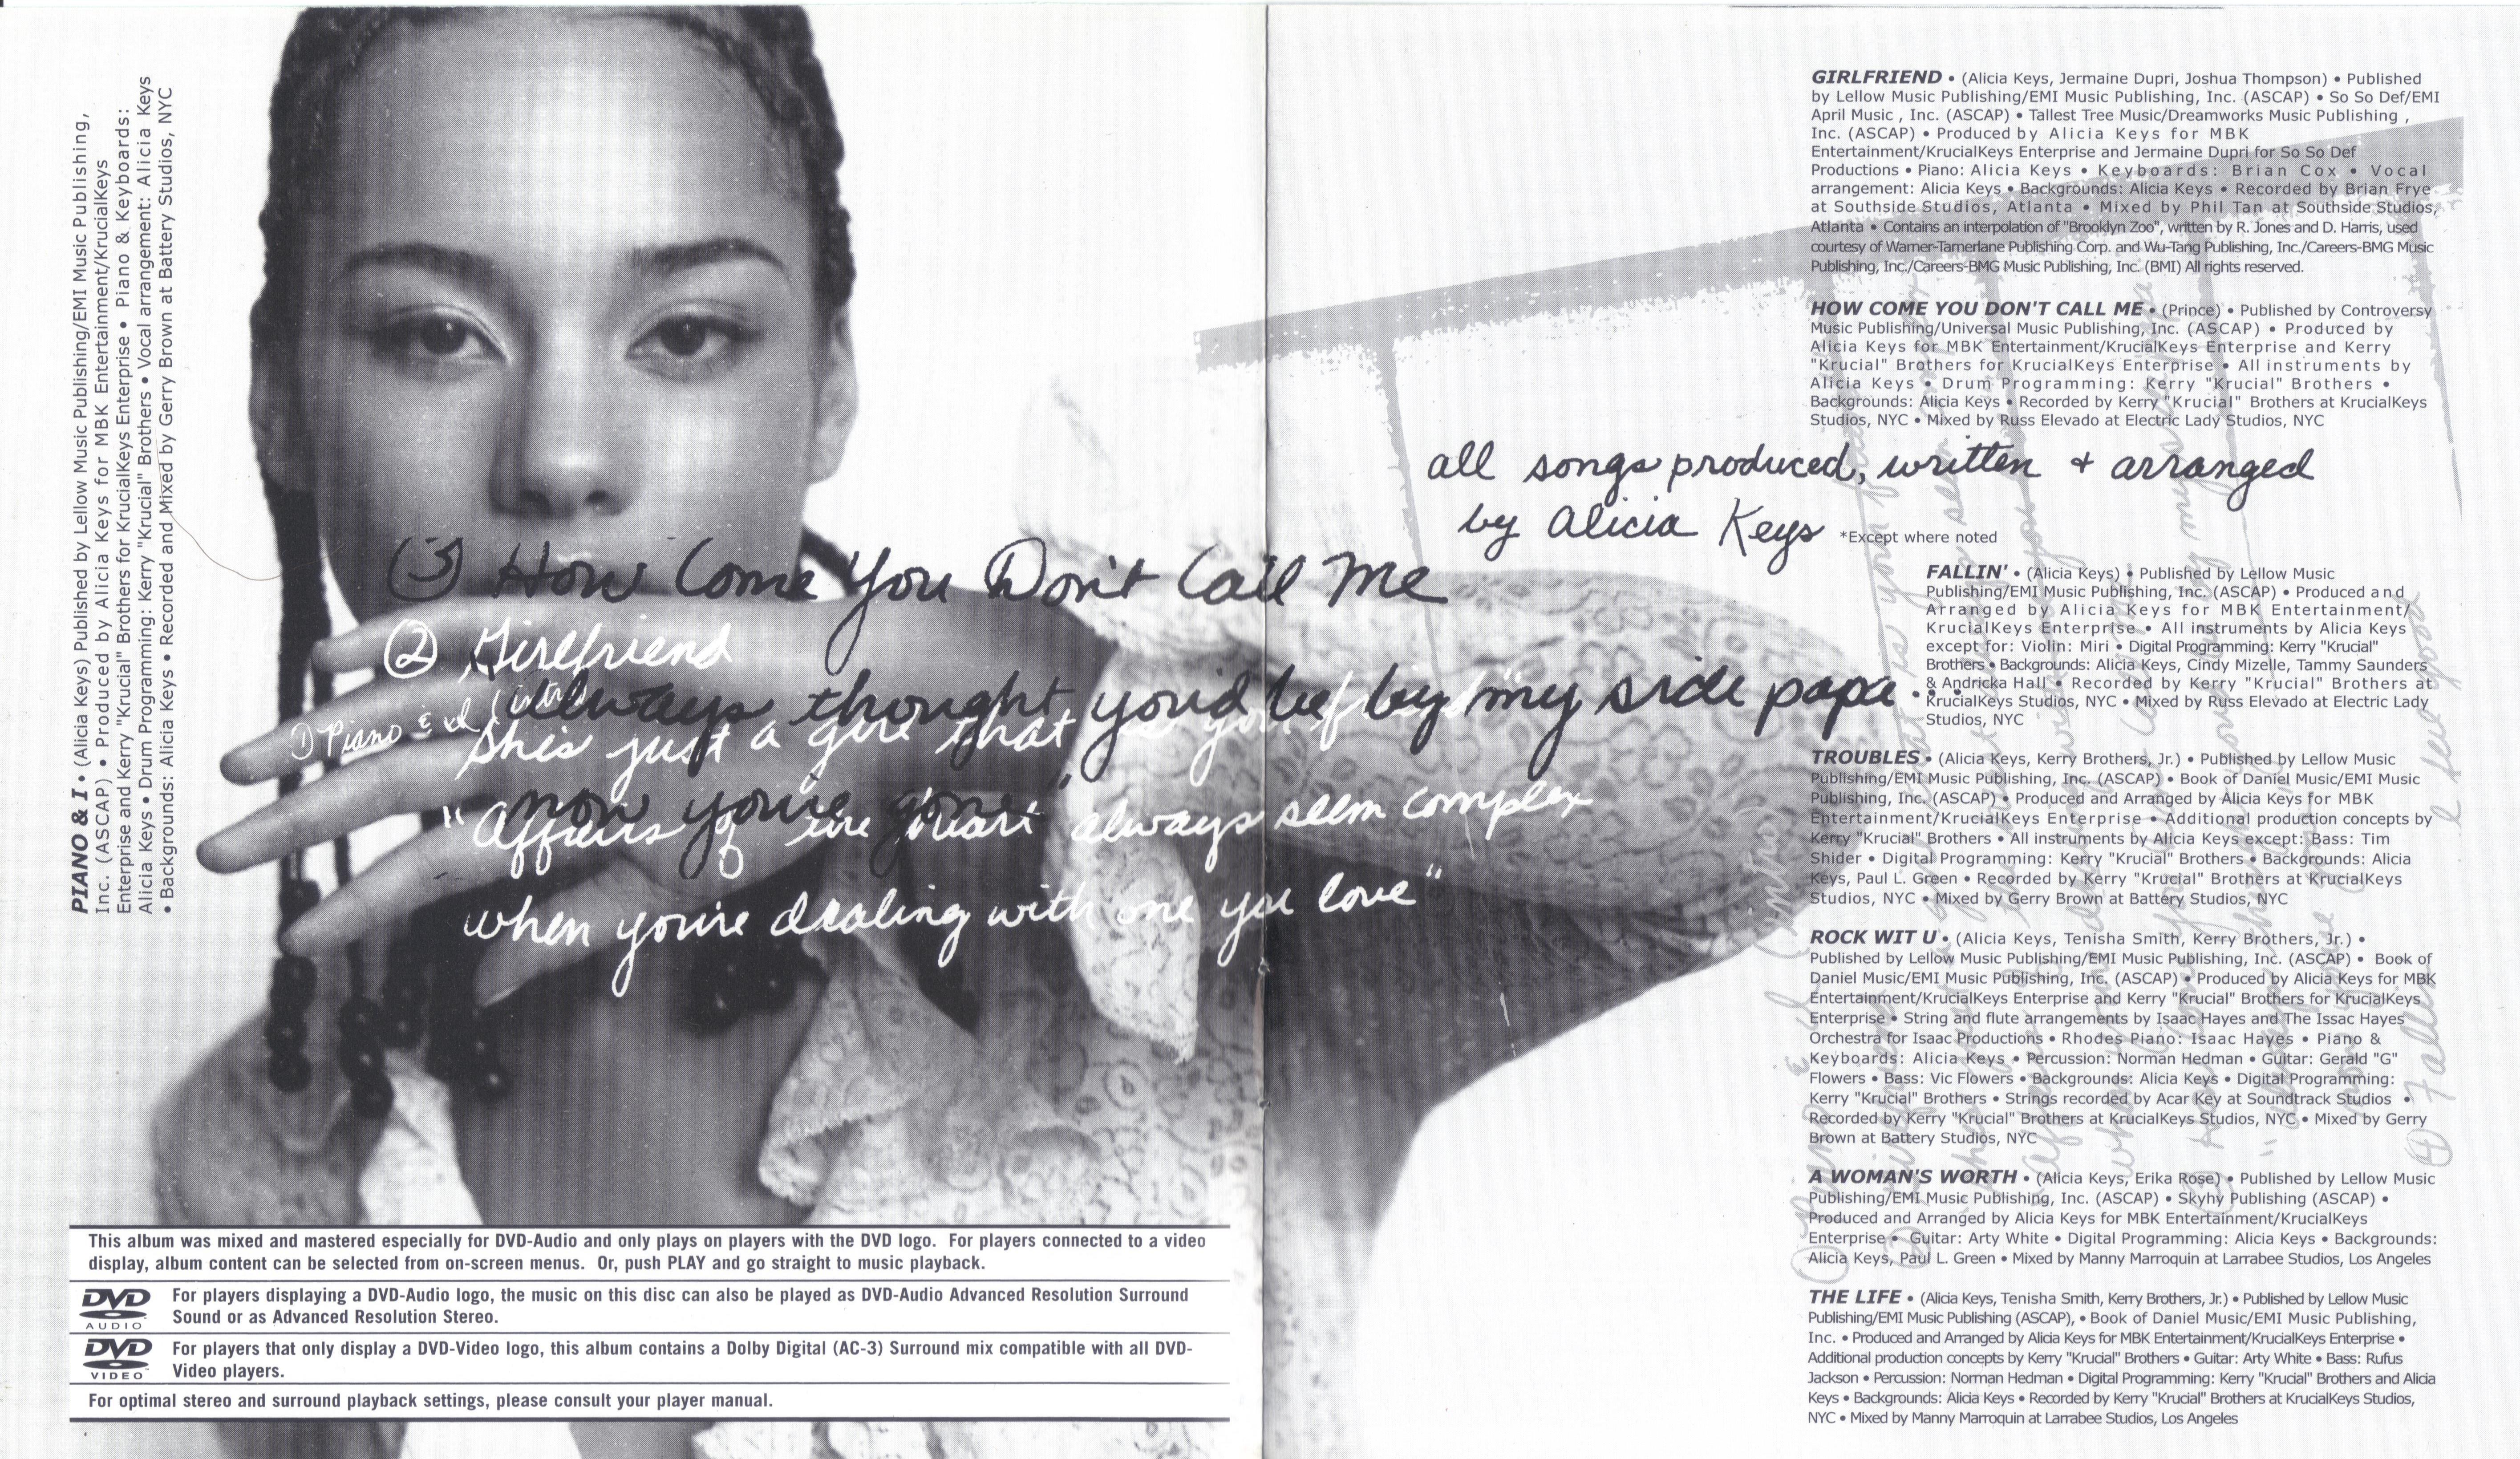 PIANO & I • (Alicia Keys) Published by Lellow Music Publishing/EMI Music Publishing,
Inc. (ASCAP) • Produced by Alicia Keys for MBK Entertainment/KrucialKeys
Enterprise and Kerry "Krucial" Brothers for KrucialKeys Enterprise • Piano & Keyboards:
Alicia Keys • Drum Programming: Kerry "Krucial" Brothers • Vocal arrangement: Alicia Keys
• Backgrounds: Alicia Keys • Recorded and Mixed by Gerry Brown at Battery Studios, NYC
③ How Come You Don't Call Me
② Girlfriend
① Piano & I (intro)
always thought you'd be by my side papa...
she's just a girl that
now you're gone"
"Affairs of the heart always seem complex
when you're dealing with one you love"
This album was mixed and mastered especially for DVD-Audio and only plays on players with the DVD logo. For players connected to a video
display, album content can be selected from on-screen menus. Or, push PLAY and go straight to music playback.
DVD
AUDIO
For players displaying a DVD-Audio logo, the music on this disc can also be played as DVD-Audio Advanced Resolution Surround
Sound or as Advanced Resolution Stereo.
DVD
VIDEO
For players that only display a DVD-Video logo, this album contains a Dolby Digital (AC-3) Surround mix compatible with all DVD-
Video players.
For optimal stereo and surround playback settings, please consult your player manual.
GIRLFRIEND • (Alicia Keys, Jermaine Dupri, Joshua Thompson) • Published
by Lellow Music Publishing/EMI Music Publishing, Inc. (ASCAP) • So So Def/EMI
April Music , Inc. (ASCAP) • Tallest Tree Music/Dreamworks Music Publishing ,
Inc. (ASCAP) • Produced by Alicia Keys for MBK
Entertainment/KrucialKeys Enterprise and Jermaine Dupri for So So Def
Productions • Piano: Alicia Keys • Keyboards: Brian Cox • Vocal
arrangement: Alicia Keys • Backgrounds: Alicia Keys • Recorded by Brian Frye
at Southside Studios, Atlanta • Mixed by Phil Tan at Southside Studios,
Atlanta • Contains an interpolation of "Brooklyn Zoo", written by R. Jones and D. Harris, used
courtesy of Warner-Tamerlane Publishing Corp. and Wu-Tang Publishing, Inc./Careers-BMG Music
Publishing, Inc./Careers-BMG Music Publishing, Inc. (BMI) All rights reserved.
HOW COME YOU DON'T CALL ME • (Prince) • Published by Controversy
Music Publishing/Universal Music Publishing, Inc. (ASCAP) • Produced by
Alicia Keys for MBK Entertainment/KrucialKeys Enterprise and Kerry
"Krucial" Brothers for KrucialKeys Enterprise • All instruments by
Alicia Keys • Drum Programming: Kerry "Krucial" Brothers •
Backgrounds: Alicia Keys • Recorded by Kerry "Krucial" Brothers at KrucialKeys
Studios, NYC • Mixed by Russ Elevado at Electric Lady Studios, NYC
all songs produced, written + arranged
by Alicia Keys *Except where noted
FALLIN' • (Alicia Keys) • Published by Lellow Music
Publishing/EMI Music Publishing, Inc. (ASCAP) • Produced and
Arranged by Alicia Keys for MBK Entertainment/
KrucialKeys Enterprise • All instruments by Alicia Keys
except for: Violin: Miri • Digital Programming: Kerry "Krucial"
Brothers • Backgrounds: Alicia Keys, Cindy Mizelle, Tammy Saunders
& Andricka Hall • Recorded by Kerry "Krucial" Brothers at
KrucialKeys Studios, NYC • Mixed by Russ Elevado at Electric Lady
Studios, NYC
TROUBLES • (Alicia Keys, Kerry Brothers, Jr.) • Published by Lellow Music
Publishing/EMI Music Publishing, Inc. (ASCAP) • Book of Daniel Music/EMI Music
Publishing, Inc. (ASCAP) • Produced and Arranged by Alicia Keys for MBK
Entertainment/KrucialKeys Enterprise • Additional production concepts by
Kerry "Krucial" Brothers • All instruments by Alicia Keys except: Bass: Tim
Shider • Digital Programming: Kerry "Krucial" Brothers • Backgrounds: Alicia
Keys, Paul L. Green • Recorded by Kerry "Krucial" Brothers at KrucialKeys
Studios, NYC • Mixed by Gerry Brown at Battery Studios, NYC
ROCK WIT U • (Alicia Keys, Tenisha Smith, Kerry Brothers, Jr.) •
Published by Lellow Music Publishing/EMI Music Publishing, Inc. (ASCAP) • Book of
Daniel Music/EMI Music Publishing, Inc. (ASCAP) • Produced by Alicia Keys for MBK
Entertainment/KrucialKeys Enterprise and Kerry "Krucial" Brothers for KrucialKeys
Enterprise • String and flute arrangements by Isaac Hayes and The Issac Hayes
Orchestra for Isaac Productions • Rhodes Piano: Isaac Hayes • Piano &
Keyboards: Alicia Keys • Percussion: Norman Hedman • Guitar: Gerald "G"
Flowers • Bass: Vic Flowers • Backgrounds: Alicia Keys • Digital Programming:
Kerry "Krucial" Brothers • Strings recorded by Acar Key at Soundtrack Studios •
Recorded by Kerry "Krucial" Brothers at KrucialKeys Studios, NYC • Mixed by Gerry
Brown at Battery Studios, NYC
A WOMAN'S WORTH • (Alicia Keys, Erika Rose) • Published by Lellow Music
Publishing/EMI Music Publishing, Inc. (ASCAP) • Skyhy Publishing (ASCAP) •
Produced and Arranged by Alicia Keys for MBK Entertainment/KrucialKeys
Enterprise • Guitar: Arty White • Digital Programming: Alicia Keys • Backgrounds:
Alicia Keys, Paul L. Green • Mixed by Manny Marroquin at Larrabee Studios, Los Angeles
THE LIFE • (Alicia Keys, Tenisha Smith, Kerry Brothers, Jr.) • Published by Lellow Music
Publishing/EMI Music Publishing (ASCAP), • Book of Daniel Music/EMI Music Publishing,
Inc. • Produced and Arranged by Alicia Keys for MBK Entertainment/KrucialKeys Enterprise •
Additional production concepts by Kerry "Krucial" Brothers • Guitar: Arty White • Bass: Rufus
Jackson • Percussion: Norman Hedman • Digital Programming: Kerry "Krucial" Brothers and Alicia
Keys • Backgrounds: Alicia Keys • Recorded by Kerry "Krucial" Brothers at KrucialKeys Studios,
NYC • Mixed by Manny Marroquin at Larrabee Studios, Los Angeles